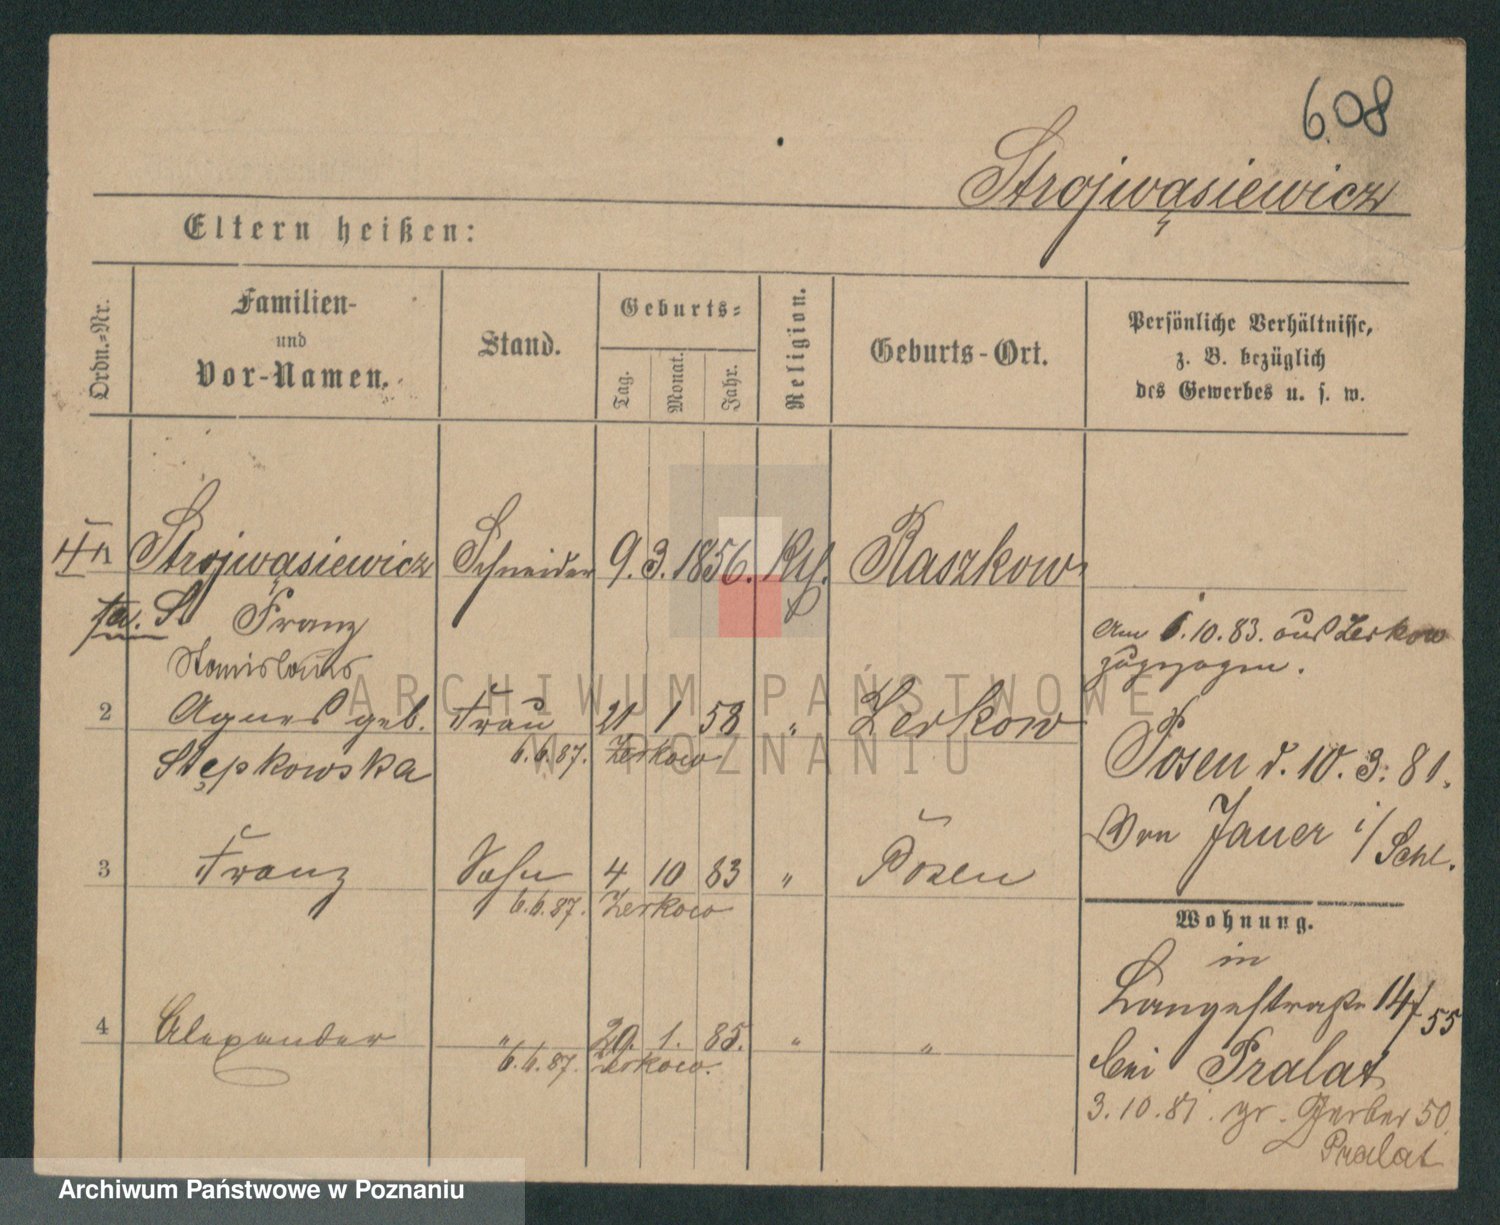 608
Strojwąsiewicz
Eltern heißen:
Ordn.-Nr.
Familien-
und
Vor-Namen.
Stand.
Geburts-
Tag.
Monat.
Jahr.
Religion.
Geburts-Ort.
Persönliche Verhältnisse,
z. B. bezüglich
des Gewerbes u. s. w.
Strojwąsiewicz Schneider 9. 3. 1856. Kth. Raszkow
Franz
Stanislaus
Am 6.10.83. aus Zerkow
zugezogen.
2 Agnes geb. Frau 21 1 58 " Zerkow
Stępkowska 6.6.87. Zerkow
Posen d. 10. 3. 81.
Von Jauer i/Schl.
3 Franz Sohn 4 10 83 " Posen
6.6.87. Zerkow
Wohnung.
in
Langestraße 14/55
bei Pralat
4 Alexander " 20. 1. 85. " "
6.6.87. Zerkow.
3.10.81. gr. Gerber 50.
Pralat
ARCHIWUM PAŃSTWOWE
W POZNANIU
Archiwum Państwowe w Poznaniu